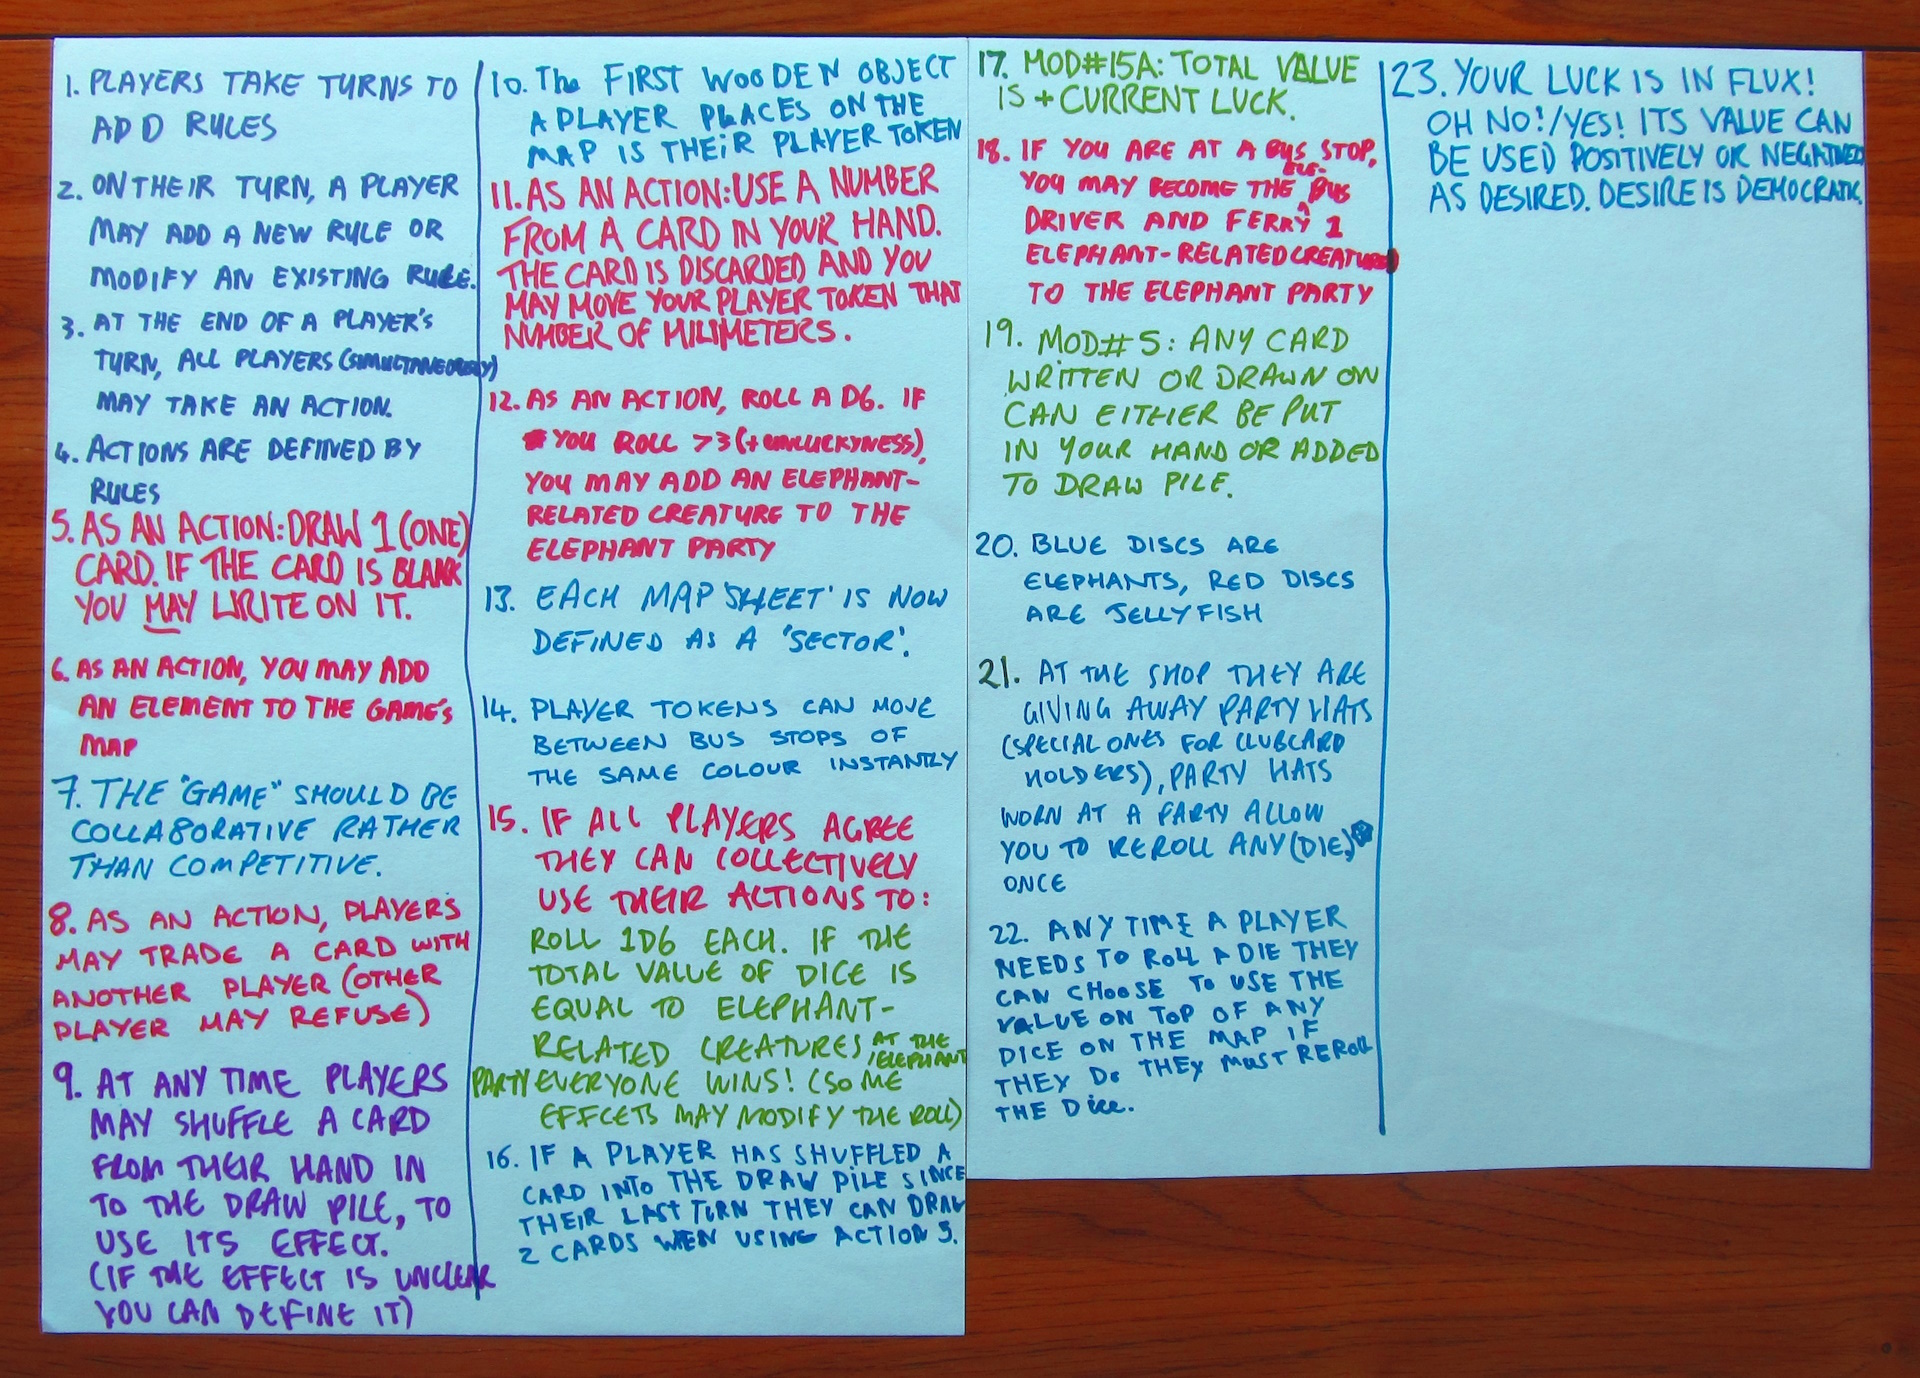 1. PLAYERS TAKE TURNS TO
ADD RULES
2. ON THEIR TURN, A PLAYER
MAY ADD A NEW RULE OR
MODIFY AN EXISTING RULE.
3. AT THE END OF A PLAYER'S
TURN, ALL PLAYERS (SIMULTANEOUSLY)
MAY TAKE AN ACTION.
4. ACTIONS ARE DEFINED BY
RULES
5. AS AN ACTION: DRAW 1 (ONE)
CARD. IF THE CARD IS BLANK
YOU MAY WRITE ON IT.
6. AS AN ACTION, YOU MAY ADD
AN ELEMENT TO THE GAME'S
MAP
7. THE "GAME" SHOULD BE
COLLABORATIVE RATHER
THAN COMPETITIVE.
8. AS AN ACTION, PLAYERS
MAY TRADE A CARD WITH
ANOTHER PLAYER (OTHER
PLAYER MAY REFUSE)
9. AT ANY TIME PLAYERS
MAY SHUFFLE A CARD
FROM THEIR HAND IN
TO THE DRAW PILE, TO
USE ITS EFFECT.
(IF THE EFFECT IS UNCLEAR
YOU CAN DEFINE IT)
10. The FIRST WOODEN OBJECT
A PLAYER PLACES ON THE
MAP IS THEIR PLAYER TOKEN
11. AS AN ACTION: USE A NUMBER
FROM A CARD IN YOUR HAND.
THE CARD IS DISCARDED AND YOU
MAY MOVE YOUR PLAYER TOKEN THAT
NUMBER OF MILIMETERS.
12. AS AN ACTION, ROLL A D6. IF
YOU ROLL >3 (+UNLUCKYNESS),
YOU MAY ADD AN ELEPHANT-
RELATED CREATURE TO THE
ELEPHANT PARTY
13. EACH MAP 'SHEET' IS NOW
DEFINED AS A 'SECTOR'.
14. PLAYER TOKENS CAN MOVE
BETWEEN BUS STOPS OF
THE SAME COLOUR INSTANTLY
15. IF ALL PLAYERS AGREE
THEY CAN COLLECTIVELY
USE THEIR ACTIONS TO:
ROLL 1D6 EACH. IF THE
TOTAL VALUE OF DICE IS
EQUAL TO ELEPHANT-
RELATED CREATURES AT THE ELEPHANT
PARTY EVERYONE WINS! (SOME
EFFCETS MAY MODIFY THE ROLL)
16. IF A PLAYER HAS SHUFFLED A
CARD INTO THE DRAW PILE SINCE
THEIR LAST TURN THEY CAN DRAW
2 CARDS WEN USING ACTION 5.
17. MOD#15A: TOTAL VALUE
IS + CURRENT LUCK.
18. IF YOU ARE AT A BUS STOP,
YOU MAY BECOME THE ELE-BUS
DRIVER AND FERRY 1
ELEPHANT-RELATED CREATURE
TO THE ELEPHANT PARTY
19. MOD#5: ANY CARD
WRITTEN OR DRAWN ON
CAN EITHER BE PUT
IN YOUR HAND OR ADDED
TO DRAW PILE.
20. BLUE DISCS ARE
ELEPHANTS, RED DISCS
ARE JELLYFISH
21. AT THE SHOP THEY ARE
GIVING AWAY PARTY HATS
(SPECIAL ONES FOR CLUBCARD
HOLDERS), PARTY HATS
WORN AT A PARTY ALLOW
YOU TO REROLL ANY (DIE)
ONCE
22. ANY TIME A PLAYER
NEEDS TO ROLL A DIE THEY
CAN CHOOSE TO USE THE
VALUE ON TOP OF ANY
DICE ON THE MAP IF
THEY DO THEY MUST REROLL
THE Dice.
23. YOUR LUCK IS IN FLUX!
OH NO!/YES! ITS VALUE CAN
BE USED POSITIVELY OR NEGATIVELY
AS DESIRED. DESIRE IS DEMOCRATIC.